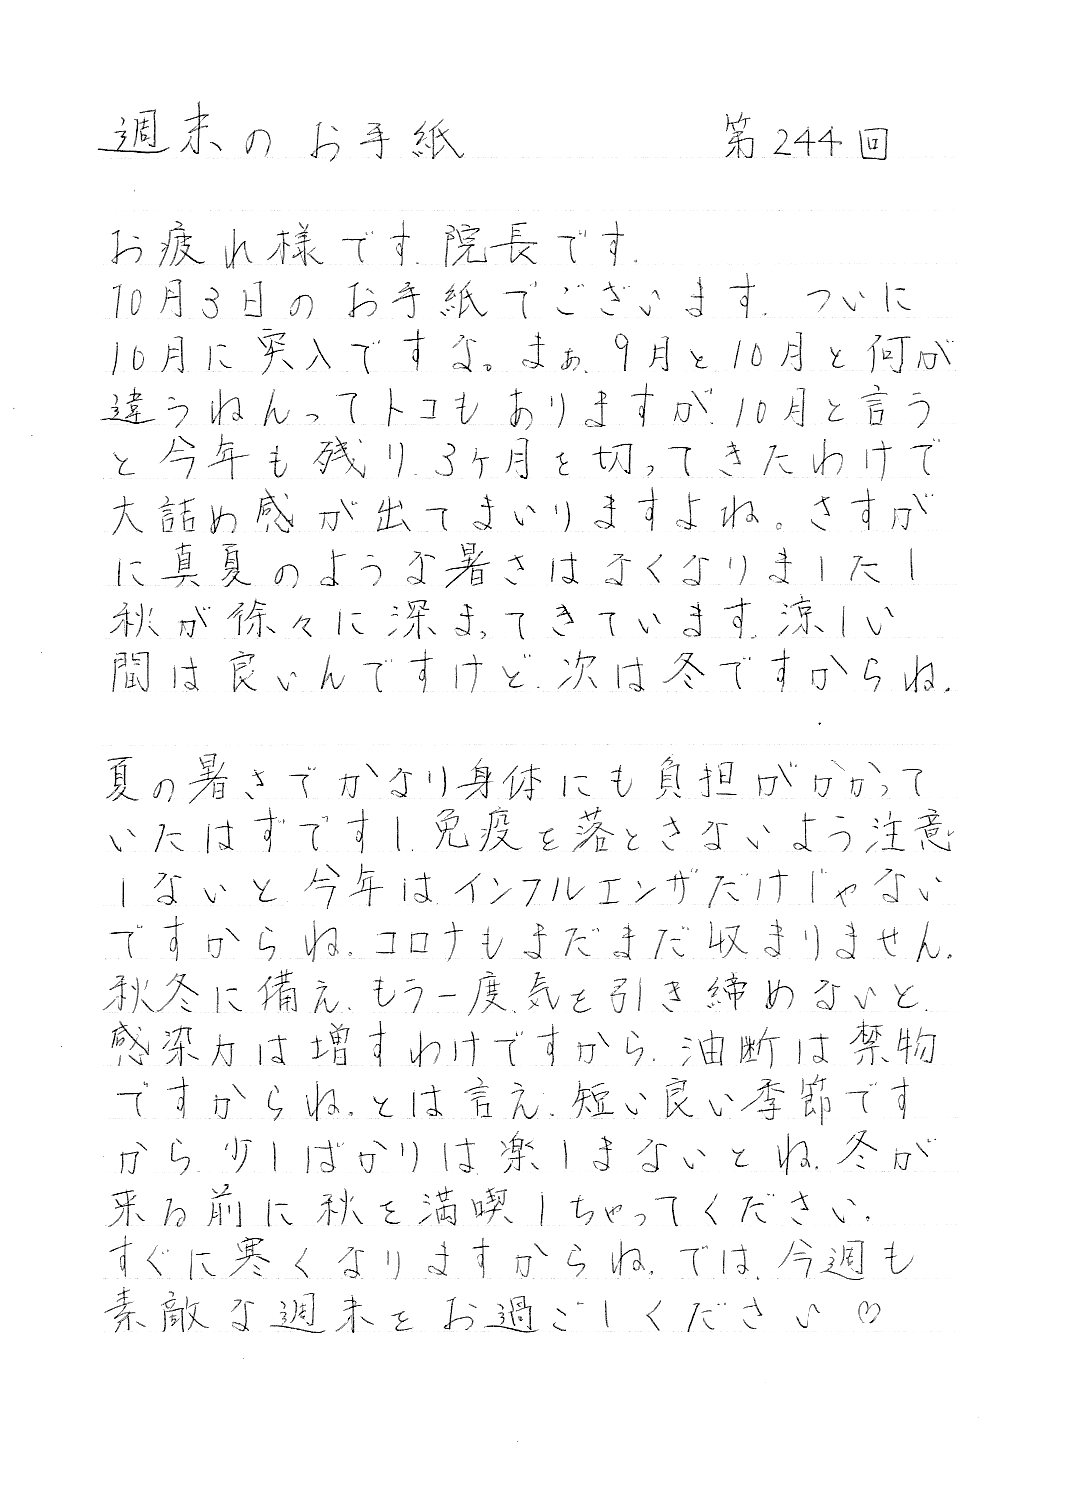 週末のお手紙 第244回
お疲れ様です.院長です.
10月3日のお手紙でございます.ついに
10月に突入ですな。まぁ、9月と10月と何が
違うねんってトコもありますが、10月と言う
と今年も残り3ヶ月を切ってきたわけで
大詰め感が出てまいりますよね。さすが
に真夏のような暑さはなくなりましたし
秋が徐々に深まってきています.涼しい
間は良いんですけど、次は冬ですからね.
夏の暑さでかなり身体にも負担がかかって
いたはずですし、免疫を落とさないよう注意
しないと今年はインフルエンザだけじゃない
ですからね.コロナもまだまだ収まりません.
秋冬に備え、もう一度、気を引き締めないと、
感染力は増すわけですから、油断は禁物
ですからね.とは言え、短い良い季節です
から、少しばかりは楽しまないとね.冬が
来る前に秋を満喫しちゃってください.
すぐに寒くなりますからね.では、今週も
素敵な週末をお過ごしください♡